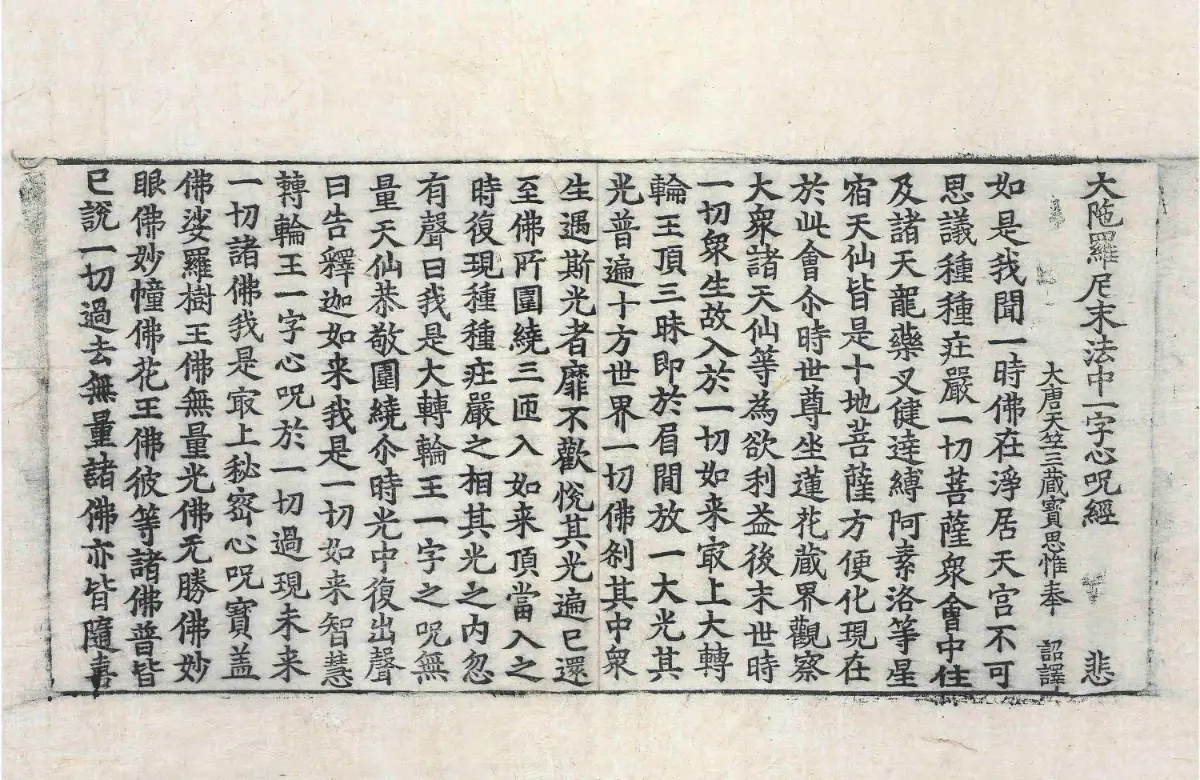 大陁羅尼末法中一字心呪經 悲
大唐天竺三藏寶思惟奉 詔譯
如是我聞一時佛在淨居天宫不可
思議種種疘嚴一切菩薩衆會中住
及諸天龍藥叉健達縛阿素洛等星
宿天仙皆是十地菩薩方便化現在
於此會尒時世尊坐蓮花藏界觀察
大衆諸天仙等為欲利益後末世時
一切衆生故入於一切如来㝡上大轉
輪王頂三昧即於眉間放一大光其
光普遍十方世界一切佛刹其中衆
生遇斯光者靡不歡悅其光遍已還
至佛所圍繞三匝入如来頂當入之
時復現種種疘嚴之相其光之内忽
有聲曰我是大轉輪王一字之呪無
量天仙恭敬圍繞尒時光中復出聲
曰告釋迦如来我是一切如来智慧
轉輪王一字心呪於一切過現未来
一切諸佛我是㝡上秘密心呪寶盖
佛娑羅樹王佛無量光佛无勝佛妙
眼佛妙幢佛花王佛彼等諸佛普皆
已說一切過去無量諸佛亦皆隨喜